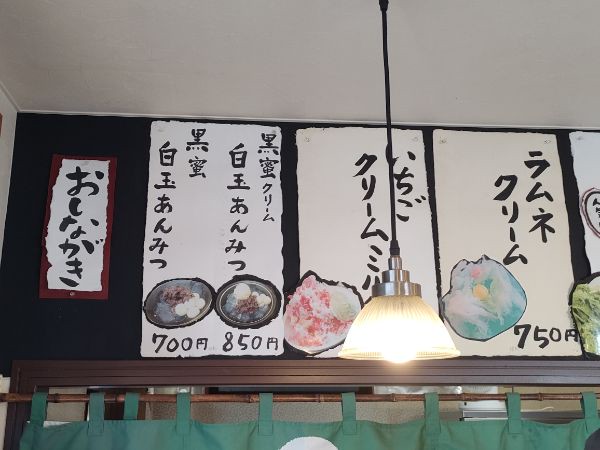 おしながき
黒蜜クリーム
白玉あんみつ
850円
黒蜜
白玉あんみつ
700円
いちご
クリームミル
ラムネ
クリーム
750円